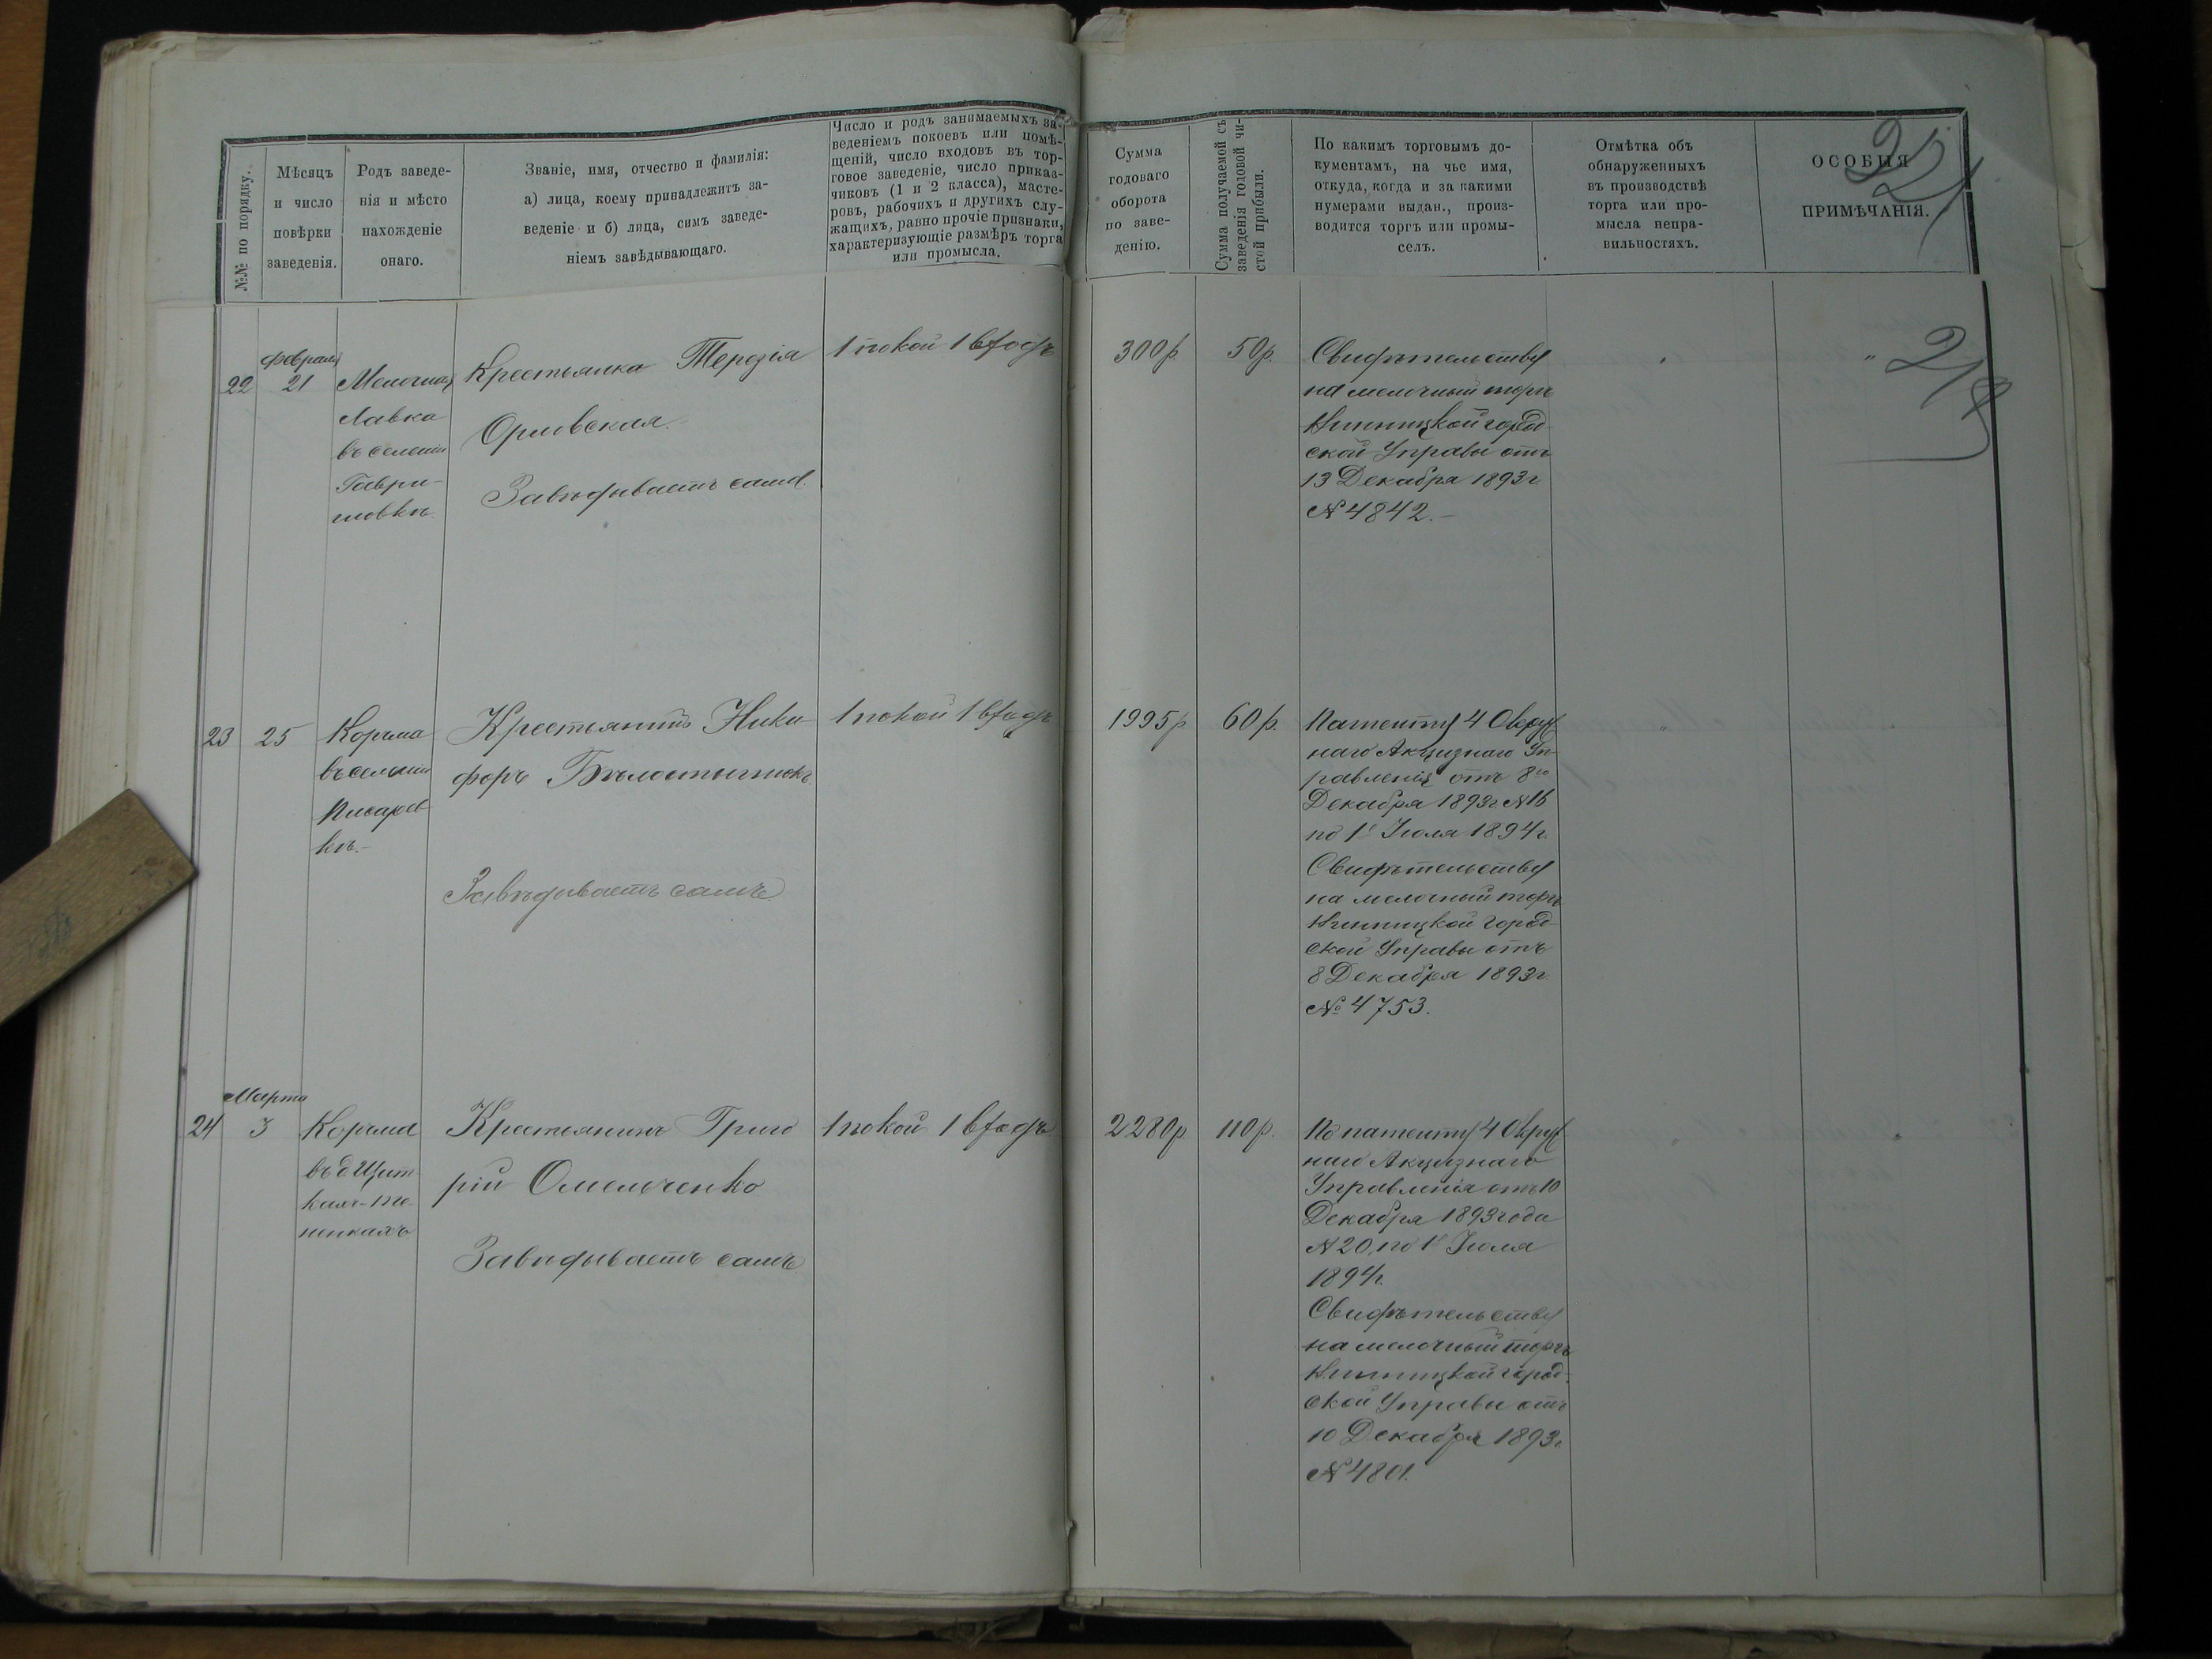 №№ по порядку.
Мѣсяцъ
и число
повѣрки
заведенія.
Родъ заведе-
нія и мѣсто
нахожденіе
онаго.
Званіе, имя, отчество и фамилія:
а) лица, коему принадлежитъ за-
веденіе и б) лица, симъ заведе-
ніемъ завѣдывающаго.
Число и родъ занимаемыхъ за-
веденіемъ покоевъ или помѣ-
щеній, число входовъ въ тор-
говое заведеніе, число приказ-
чиковъ (1 и 2 класса), масте-
ровъ, рабочихъ и другихъ слу-
жащихъ, равно прочіе признаки,
характеризующіе размѣръ торга
или промысла.
Сумма
годоваго
оборота
по заве-
денію.
Сумма получаемой съ
заведенія годовой чи-
стой прибыли.
По какимъ торговымъ до-
кументамъ, на чье имя,
откуда, когда и за какими
нумерами выдан., произ-
водится торгъ или промы-
селъ.
Отмѣтка объ
обнаруженныхъ
въ производствѣ
торга или про-
мысла непра-
вильностяхъ.
ОСОБЫЯ
ПРИМѢЧАНІЯ.
218
22
Февраля
21
Мелочная
Лавка
въ селеніи
Гаври-
ловкѣ.
Крестьянка Терезія
Орловская.
Завѣдываетъ сама.
1 покой 1 входъ
300 р
50 р.
Свидѣтельству
на мелочный торгъ
Винницкой город-
ской Управы отъ
13 Декабря 1893 г
№ 4842.-
23
25
Корчма
въ селеніи
Писарев-
кѣ.-
Крестьянинъ Ники-
форъ
Завѣдываетъ самъ
1 покой 1 входъ
1995 р.
60 р.
Патенту 4 Окруж
наго Акцизнаго Уп-
равленія отъ 8го
Декабря 1893 г. № 16
по 1е Іюля 1894 г.
Свидѣтельству
на мелочный торгъ
Винницкой Город-
ской Управы отъ
8 Декабря 1893 г.
№ 4753.
24
Марта
3
Корчма
въ д
Крестьянинъ Григо
рій Омельченко
Завѣдываетъ самъ
1 покой 1 входъ
2280 р.
110 р.
По патенту 4 Окруж
наго Акцизнаго
Управленія отъ 10
Декабря 1893 года
№ 20, по 1е Іюля
1894 г.
Свидѣтельству
на мелочный торгъ
Винницкой город-
ской Управы отъ
10 Декабря 1893 г
№ 4801.